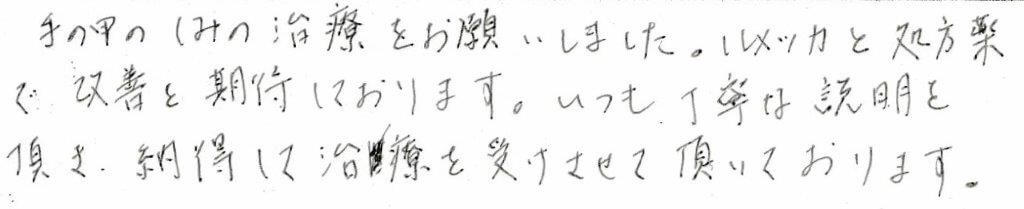 手の甲のしみの治療をお願いしました。ルメッカと処方薬
で改善を期待しております。いつも丁寧な説明を
頂き、納得して治療を受けさせて頂いております。